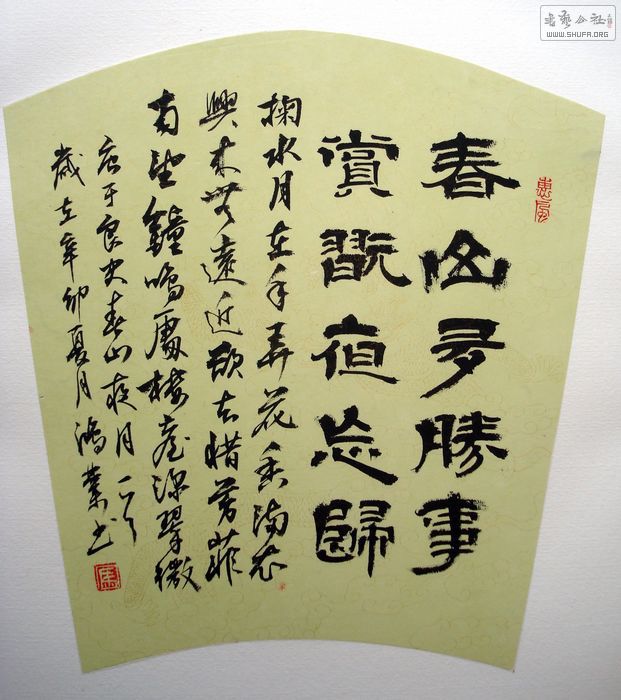 書藝公社
WWW.SHUFA.ORG
惠風
春山多勝事
賞翫夜忘歸
掬水月在手弄花香滿衣
興來無遠近欲去惜芳菲
南望鐘鳴處樓臺深翠微
唐于良史春山夜月一首
歲在辛卯夏月鴻業书